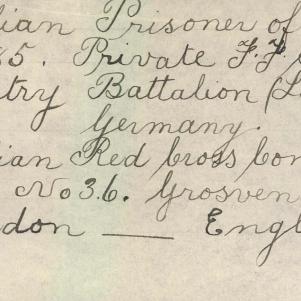 lian Prisoner of
5. Private F. J.
try Battalion (
Germany.
ian Red Cross Com
No 36. Grosven
don — Engl